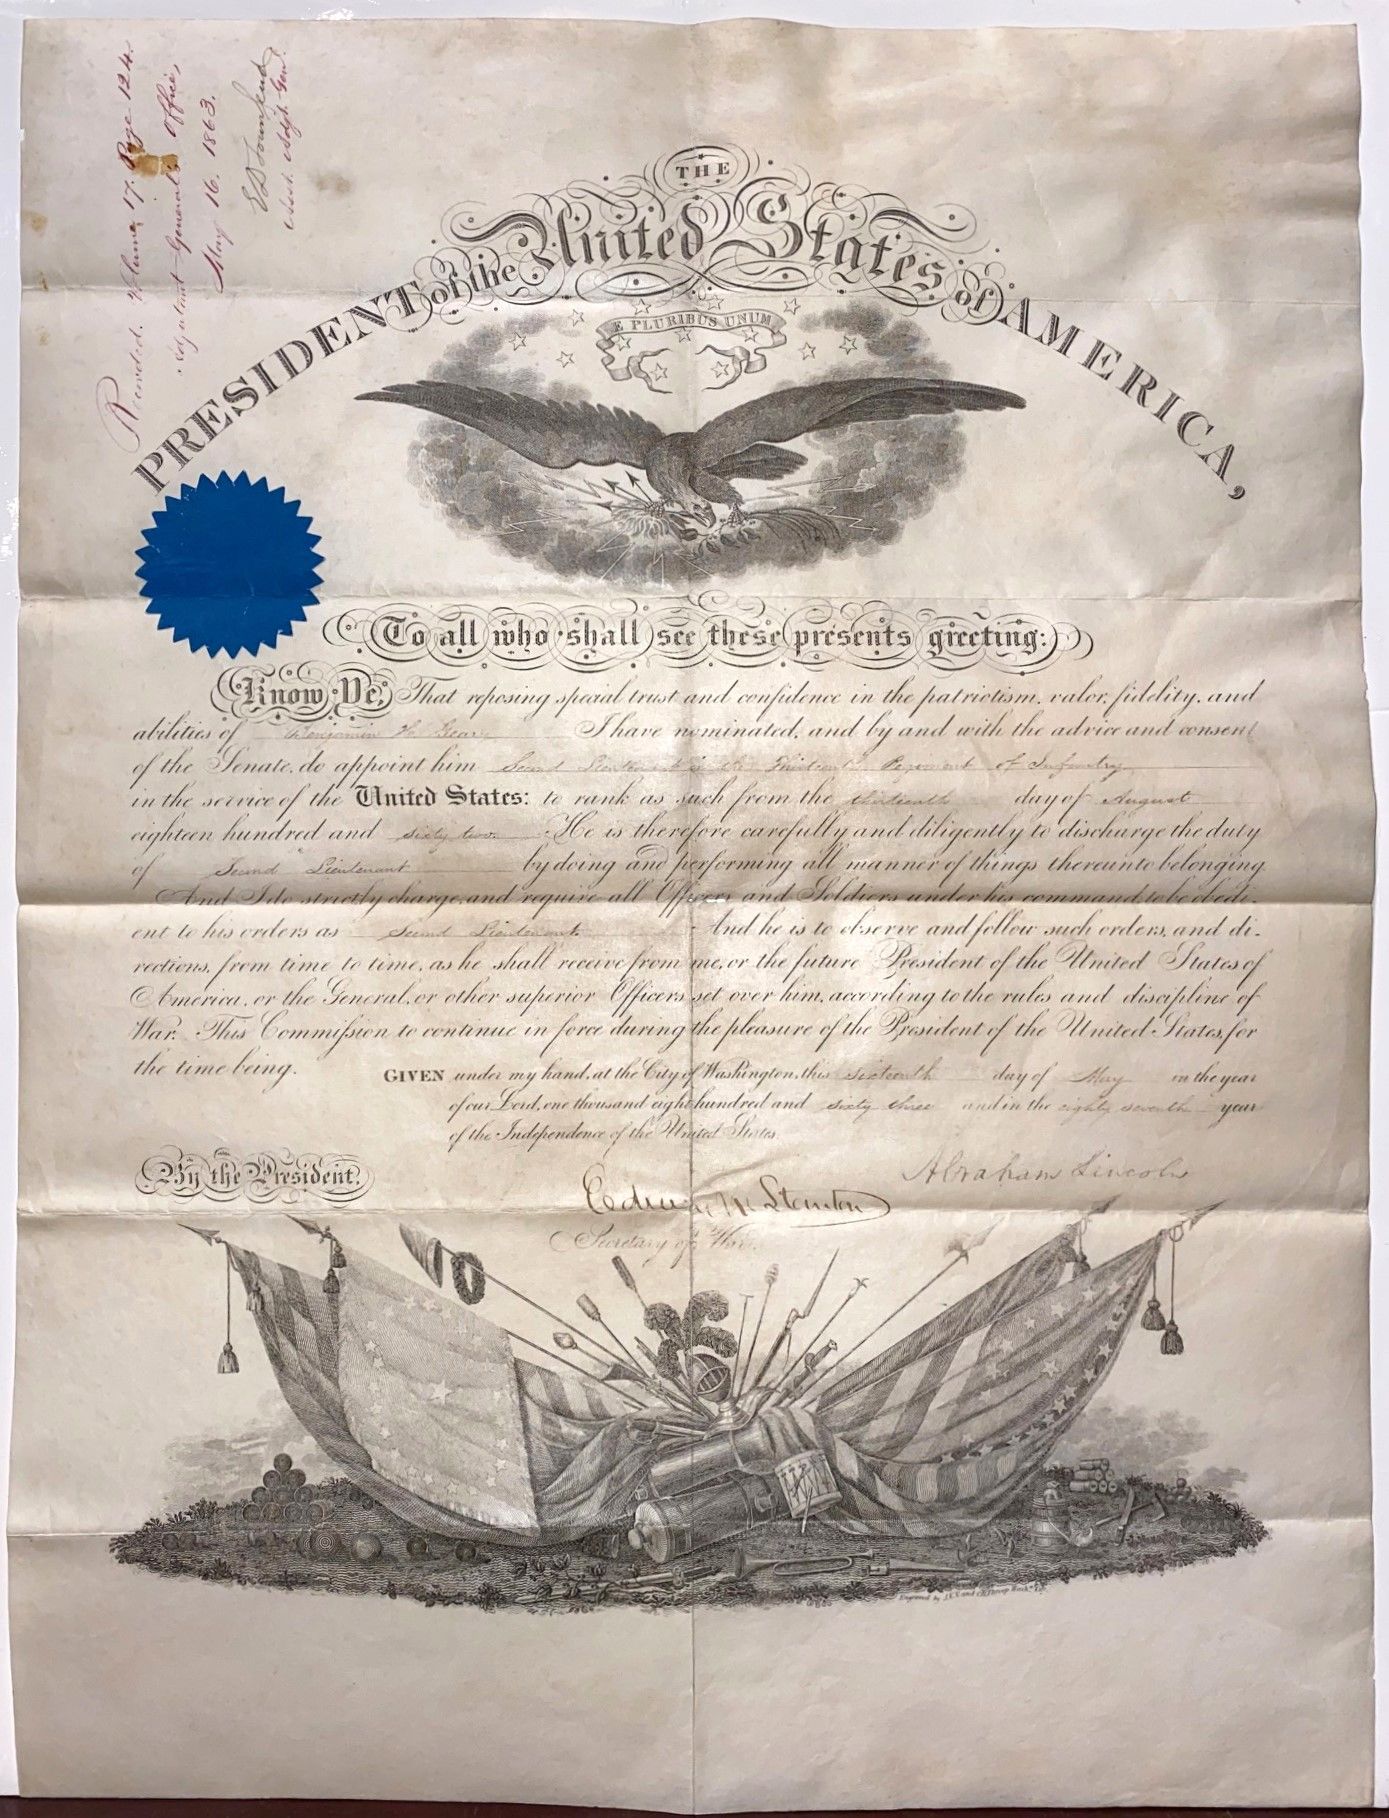 Recorded. Volume 17. Page 124.
Adjutant General's Office,
May 16. 1863.
E D Townsend
Asst. Adjt. Genl.
THE
PRESIDENT of the United States of AMERICA,
E PLURIBUS UNUM
To all who shall see these presents greeting:
Know Ye, That reposing special trust and confidence in the patriotism, valor, fidelity, and
abilities of Benjamin H. I have nominated, and by and with the advice and consent
of the Senate, do appoint him Second Lieutenant in the Thirteenth Regiment of Infantry
in the service of the United States: to rank as such from the thirteenth day of August
eighteen hundred and sixty two. He is therefore carefully and diligently to discharge the duty
of Second Lieutenant by doing and performing all manner of things thereunto belonging
And I do strictly charge, and require all Officers and Soldiers under his command to be obedi-
ent to his orders as Second Lieutenant. And he is to observe and follow such orders, and di-
rections, from time to time, as he shall receive from me, or the future President of the United States of
America, or the General, or other superior Officers set over him, according to the rules and discipline of
War. This Commission to continue in force during the pleasure of the President of the United States, for
the time being.
GIVEN under my hand, at the City of Washington, this sixteenth day of May in the year
of our Lord, one thousand eight hundred and sixty three and in the eighty seventh year
of the Independence of the United States.
By the President.
Abraham Lincoln
Edwin M Stanton
Secretary of War.
Engraved by